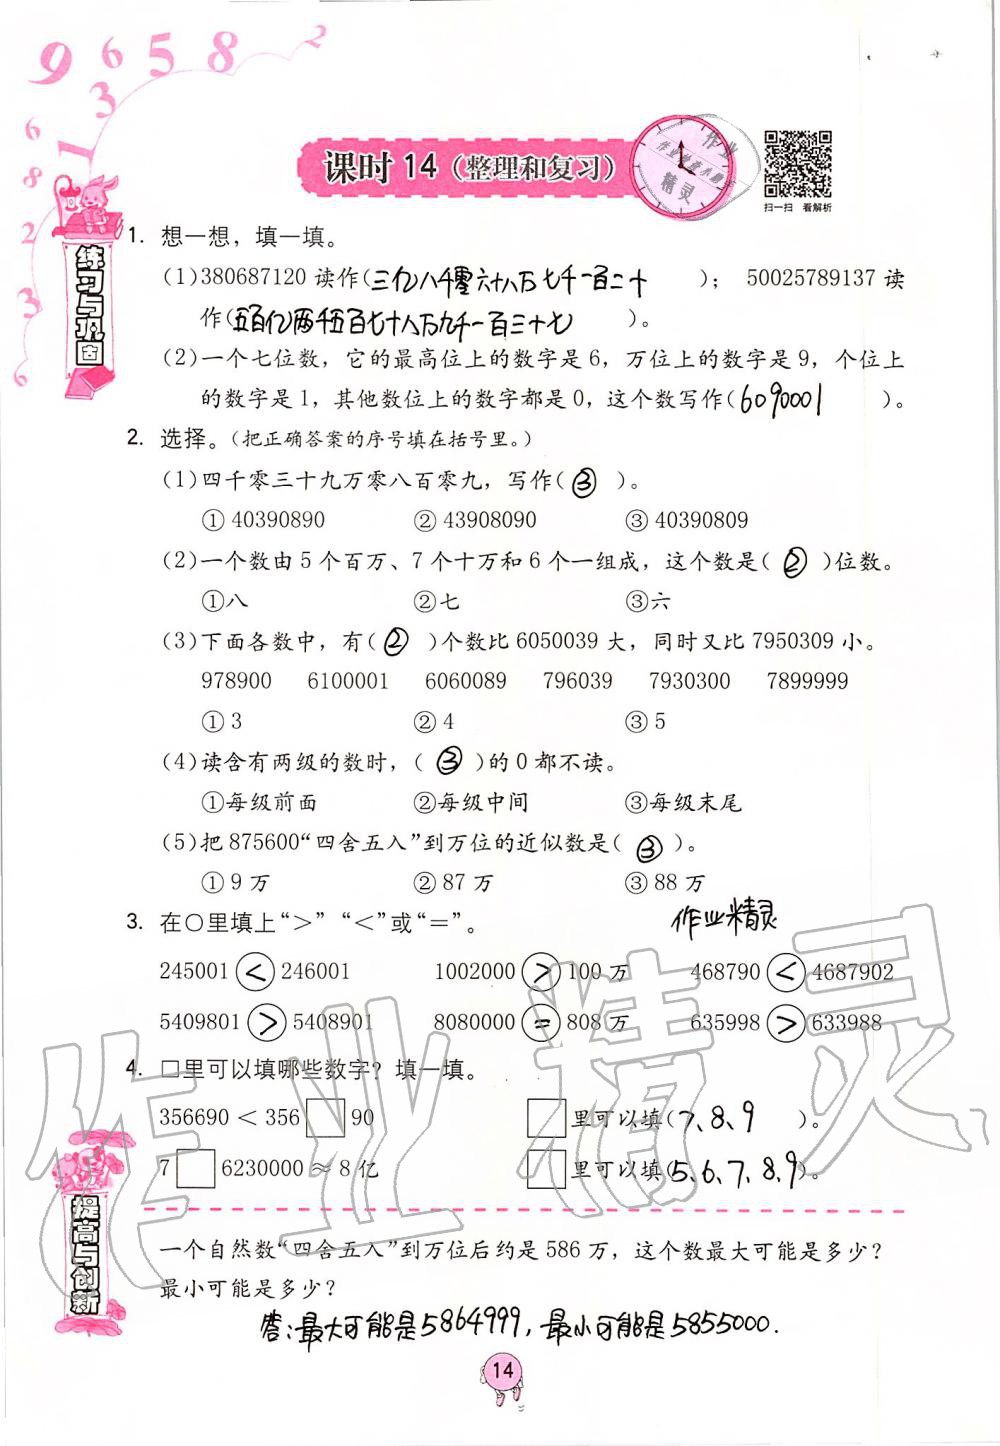 9 6 5 8 2
3
6
1
8
2
3
3
6
课时 14（整理和复习）
作业
作业检查小助手
精灵
扫一扫 看解析
练习与巩固
1. 想一想，填一填。
（1）380687120 读作（三亿八千零六十八万七千一百二十）； 50025789137 读
作（五百亿两千五百七十八万九千一百三十七）。
（2）一个七位数，它的最高位上的数字是 6，万位上的数字是 9，个位上
的数字是 1，其他数位上的数字都是 0，这个数写作（6090001）。
2. 选择。（把正确答案的序号填在括号里。）
（1）四千零三十九万零八百零九，写作（③）。
① 40390890 ② 43908090 ③ 40390809
（2）一个数由 5 个百万、7 个十万和 6 个一组成，这个数是（②）位数。
①八 ②七 ③六
（3）下面各数中，有（②）个数比 6050039 大，同时又比 7950309 小。
978900 6100001 6060089 796039 7930300 7899999
① 3 ② 4 ③ 5
（4）读含有两级的数时，（③）的 0 都不读。
①每级前面 ②每级中间 ③每级末尾
（5）把 875600“四舍五入”到万位的近似数是（③）。
① 9 万 ② 87 万 ③ 88 万
3. 在○里填上“＞”“＜”或“＝”。 作业精灵
245001 < 246001 1002000 > 100 万 468790 < 4687902
5409801 > 5408901 8080000 = 808 万 635998 > 633988
4. □里可以填哪些数字？填一填。
356690 ＜ 356□90 □里可以填（7、8、9）。
7□6230000 ≈ 8 亿 □里可以填（5、6、7、8、9）。
提高与创新
一个自然数“四舍五入”到万位后约是 586 万，这个数最大可能是多少？
最小可能是多少？
答：最大可能是5864999，最小可能是5855000.
14
作业精灵